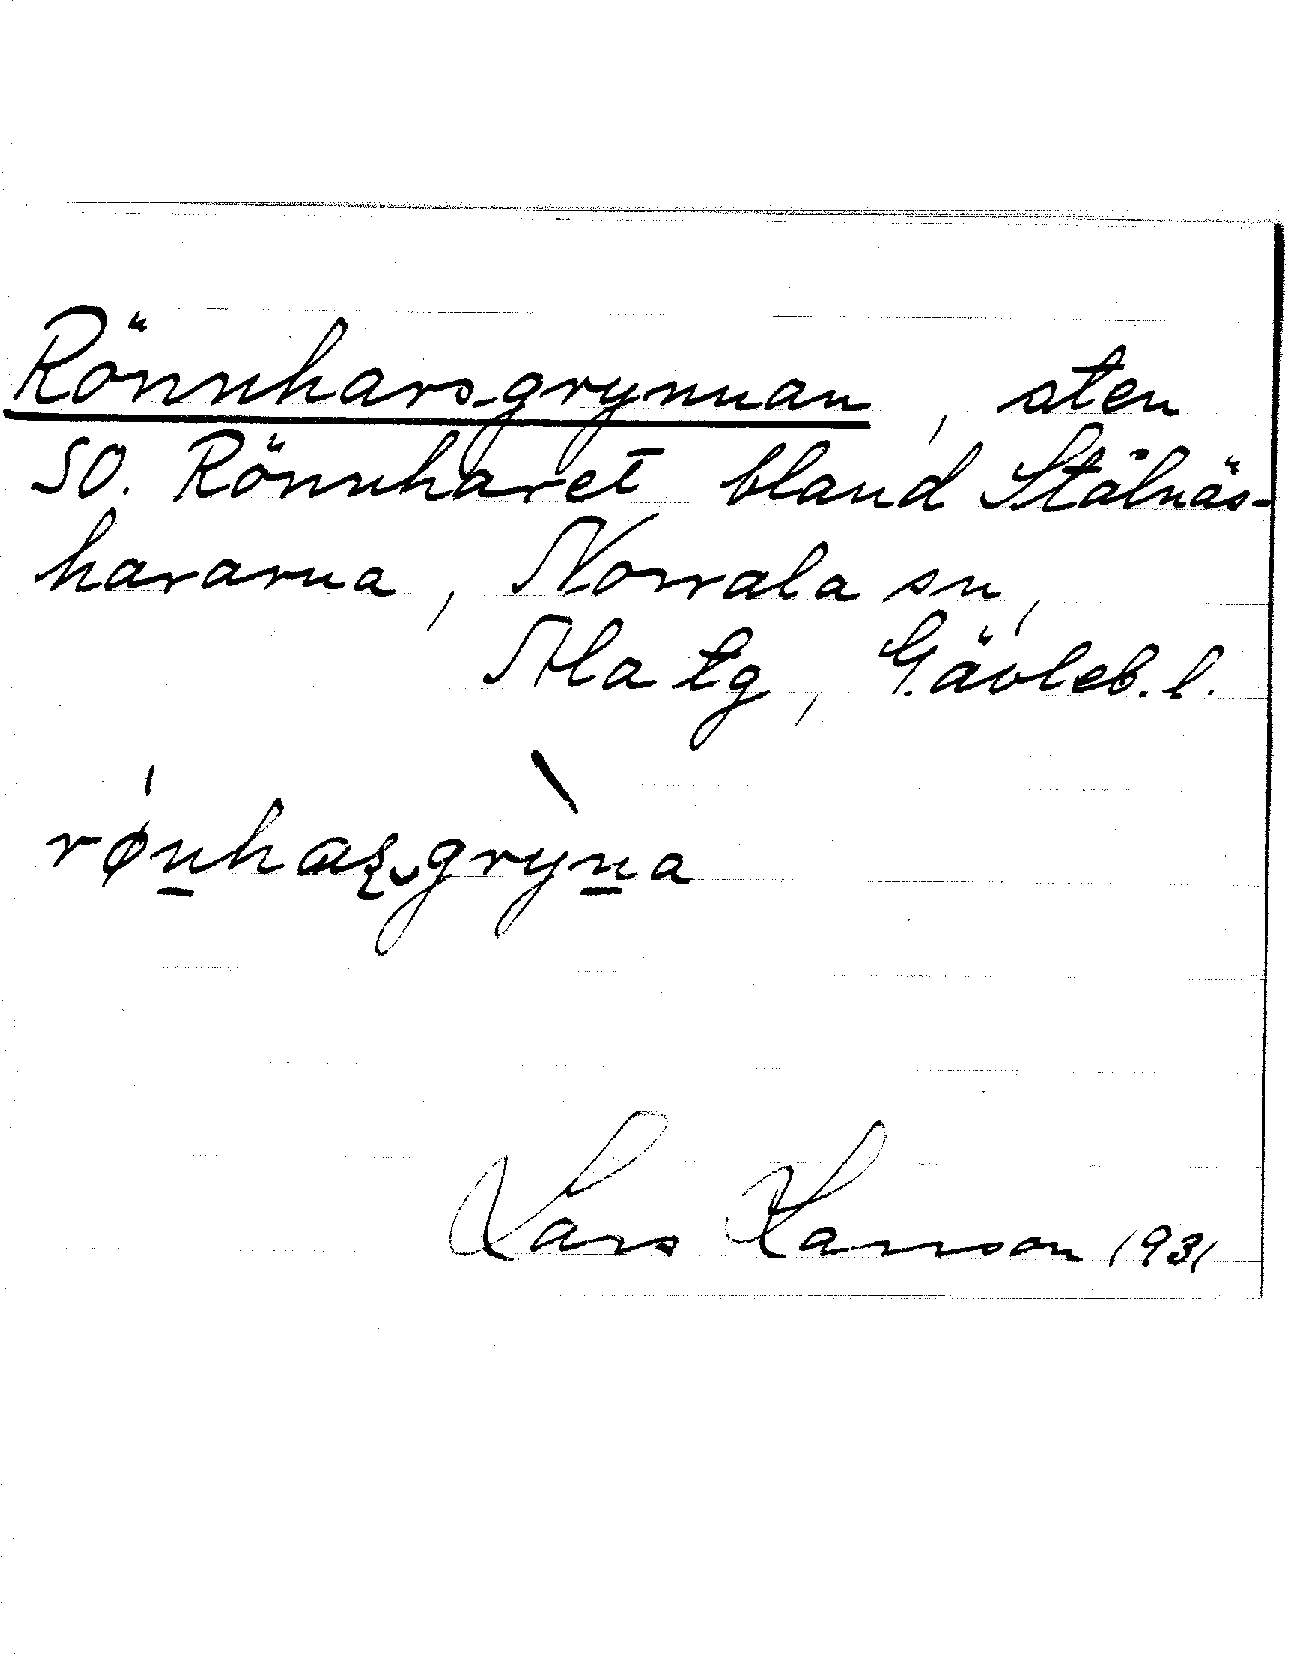 Rönnhars-grynnan, sten
SO. Rönnharet bland Stålnäs-
hararna, Norrala sn,
Ala tg, Gävleb. l.
rǿn̲haʂ‿grỳn̲a
Lars Larsson 1931